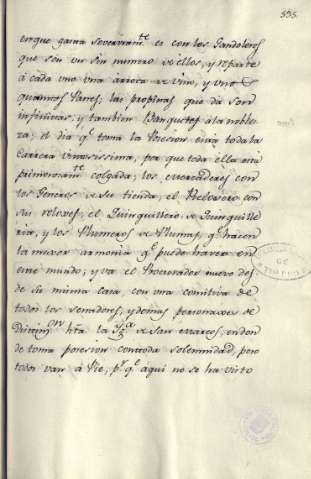 535.
en que gasta severisim.te es con los Gondoleros
que son un sin numero de ellos, y reparte
à cada uno una arroba de vino, y
quantos Panes; las propinas que dà son
infinitas, y tambien Banquetes à la noble
za; el dia q.e toma la Posesion està toda la
carrera vistosissima, por que toda ella està
primorosam.te colgada; los mercaderes con
los Generos de su tienda, el Reloxero con
sus reloxes, el Quinquillero de Quinquille
ria, y los Plumeros de Plumas, q.e hacen
la mayor armonia q.e puede haver en
este mundo, y va el Procurador nuevo des
de su misma casa, con una comitiva de
todos los senadores, y demas personaxes de
Distinc.on hta la Ygl.a de San Marcos, en don
de toma posesion con toda solemnidad, pero
todos van à Pie, p.r q.e aqui no se ha visto